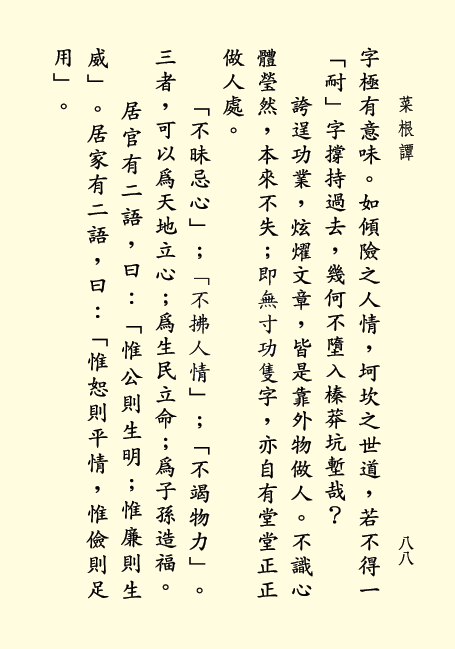 菜根譚
八八
字極有意味。如傾險之人情，坷坎之世道，若不得一
「耐」字撐持過去，幾何不墮入榛莽坑塹哉？
誇逞功業，炫燿文章，皆是靠外物做人。不識心
體瑩然，本來不失；即無寸功隻字，亦自有堂堂正正
做人處。
「不昧忌心」；「不拂人情」；「不竭物力」。
三者，可以爲天地立心；爲生民立命；爲子孫造福。
居官有二語，曰：「惟公則生明；惟廉則生
威」。居家有二語，曰：「惟恕則平情，惟儉則足
用」。